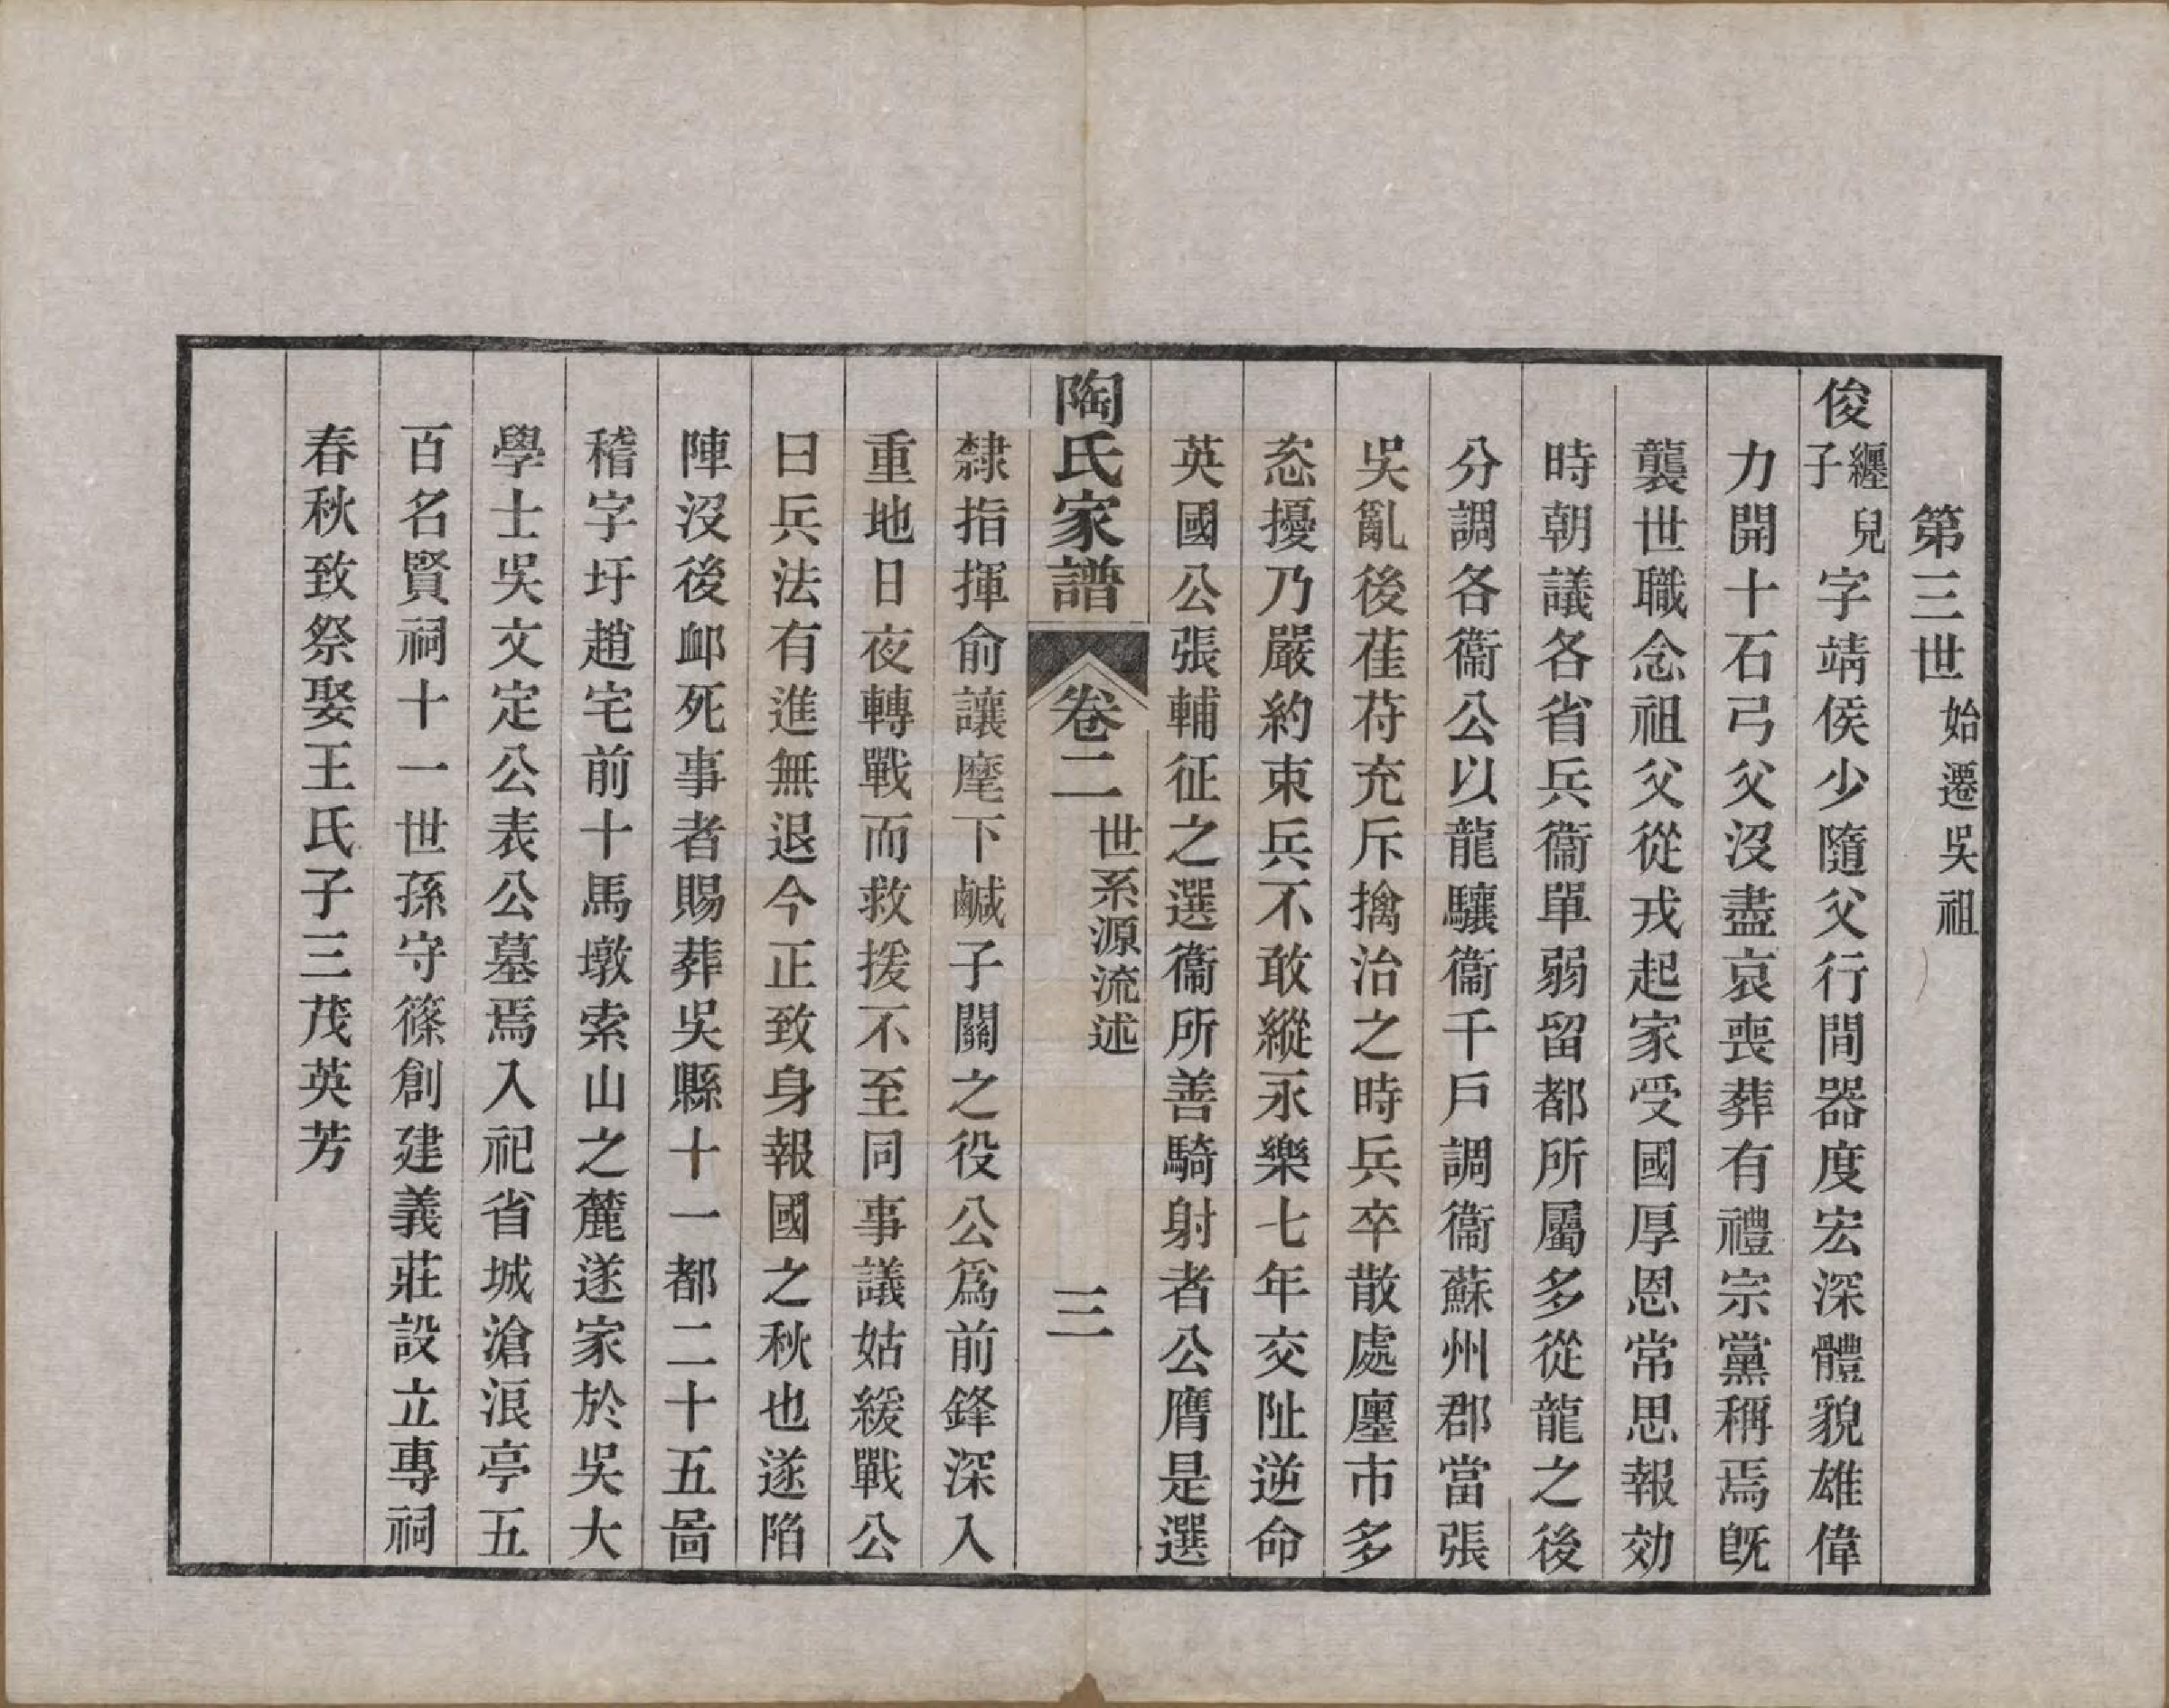 第三世始遷吳祖
俊纏兒子字靖侯少隨父行間器度宏深體貌雄偉
力開十石弓父沒盡哀喪葬有禮宗黨稱焉旣
襲世職念祖父從戎起家受國厚恩常思報効
時朝議各省兵衞單弱留都所屬多從龍之後
分調各衞公以龍驤衞千戶調衞蘇州郡當張
吳亂後萑苻充斥擒治之時兵卒散處廛市多
恣擾乃嚴約束兵不敢縱永樂七年交阯逆命
英國公張輔征之選衞所善騎射者公膺是選
陶氏家譜 卷二 世系源流述 三
隸指揮俞讓麾下鹹子關之役公爲前鋒深入
重地日夜轉戰而救援不至同事議姑緩戰公
曰兵法有進無退今正致身報國之秋也遂陷
陣沒後卹死事者賜葬吳縣十一都二十五啚
稽字圩趙宅前十馬墩索山之麓遂家於吳大
學士吳文定公表公墓焉入祀省城滄浪亭五
百名賢祠十一世孫守篠創建義莊設立專祠
春秋致祭娶王氏子三茂英芳